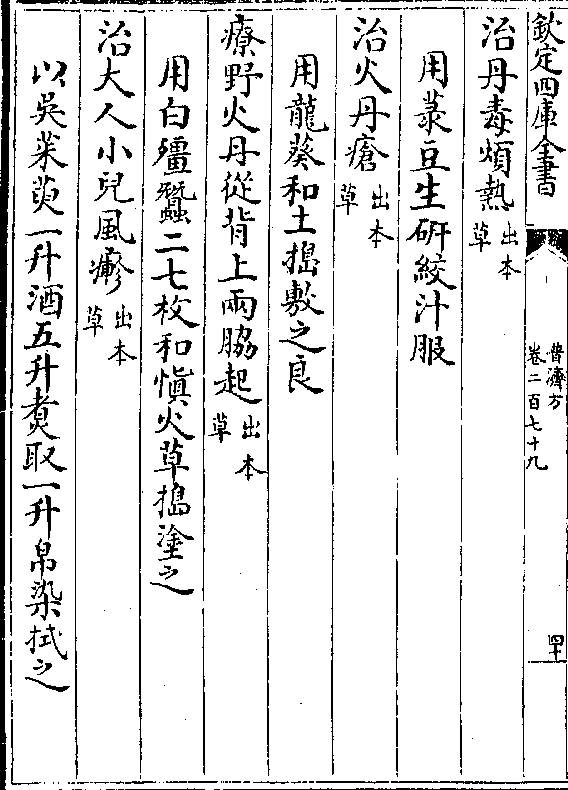 欽定四庫全書
普濟方
卷二百七十九
治丹毒煩熱出本草
用菉豆生研絞汁服
治火丹瘡出本草
用龍葵和土搗敷之良
療野火丹從背上兩脇起出本草
用白殭蠶二七枚和慎火草搗塗之
治大人小兒風㾦出本草
以吳茱萸一升酒五升煮取一升帛染拭之